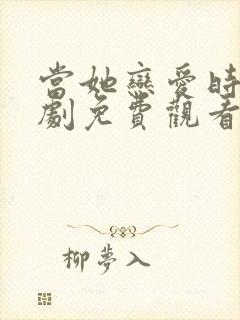 當她戀愛時
劇免費觀看
柳夢入